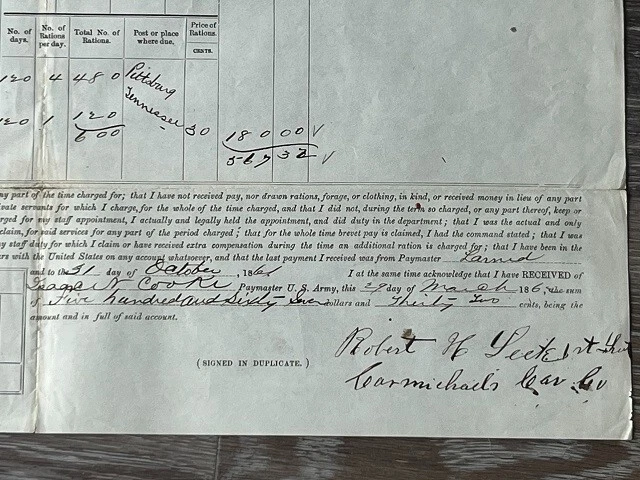 No. of days. No. of Rations per day. Total No. of Rations. Post or place where due. Price of Rations.
CENTS.
120 4 480 Pittsburg
Tennessee
120 1 120 30 180 00 √
600 567 32 √
ny part of the time charged for; that I have not received pay, nor drawn rations, forage, or clothing, in kind, or received money in lieu of any part
ivate servants for which I charge, for the whole of the time charged, and that I did not, during the term so charged, or any part thereof, keep or
rged for my staff appointment, I actually and legally held the appointment, and did duty in the department; that I was the actual and only
claim, for said services for any part of the period charged; that for the whole time brevet pay is claimed, I had the command stated; that I was
y staff duty for which I claim or have received extra compensation during the time an additional ration is charged for; that I have been in the
rs with the United States on any account whatsoever, and that the last payment I received was from Paymaster Larned
and to the 31 day of October, 1861 I at the same time acknowledge that I have RECEIVED of
N Cooke Paymaster U. S. Army, this 28 day of March 186, the sum
of Five hundred and Sixty Seven dollars and Thirty Two cents, being the
amount and in full of said account.
(SIGNED IN DUPLICATE.)
Robert H 1st
Carmichaels Cav Co